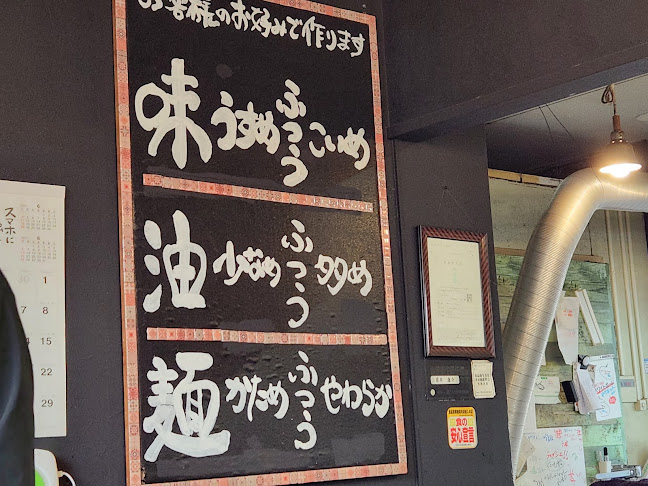 お客様のお好みで作ります
味 うすめ ふつう こいめ
油 少なめ ふつう 多め
麺 かため ふつう やわらか
スマホに
1
7 8
14 15
22
29
食の
安心宣言